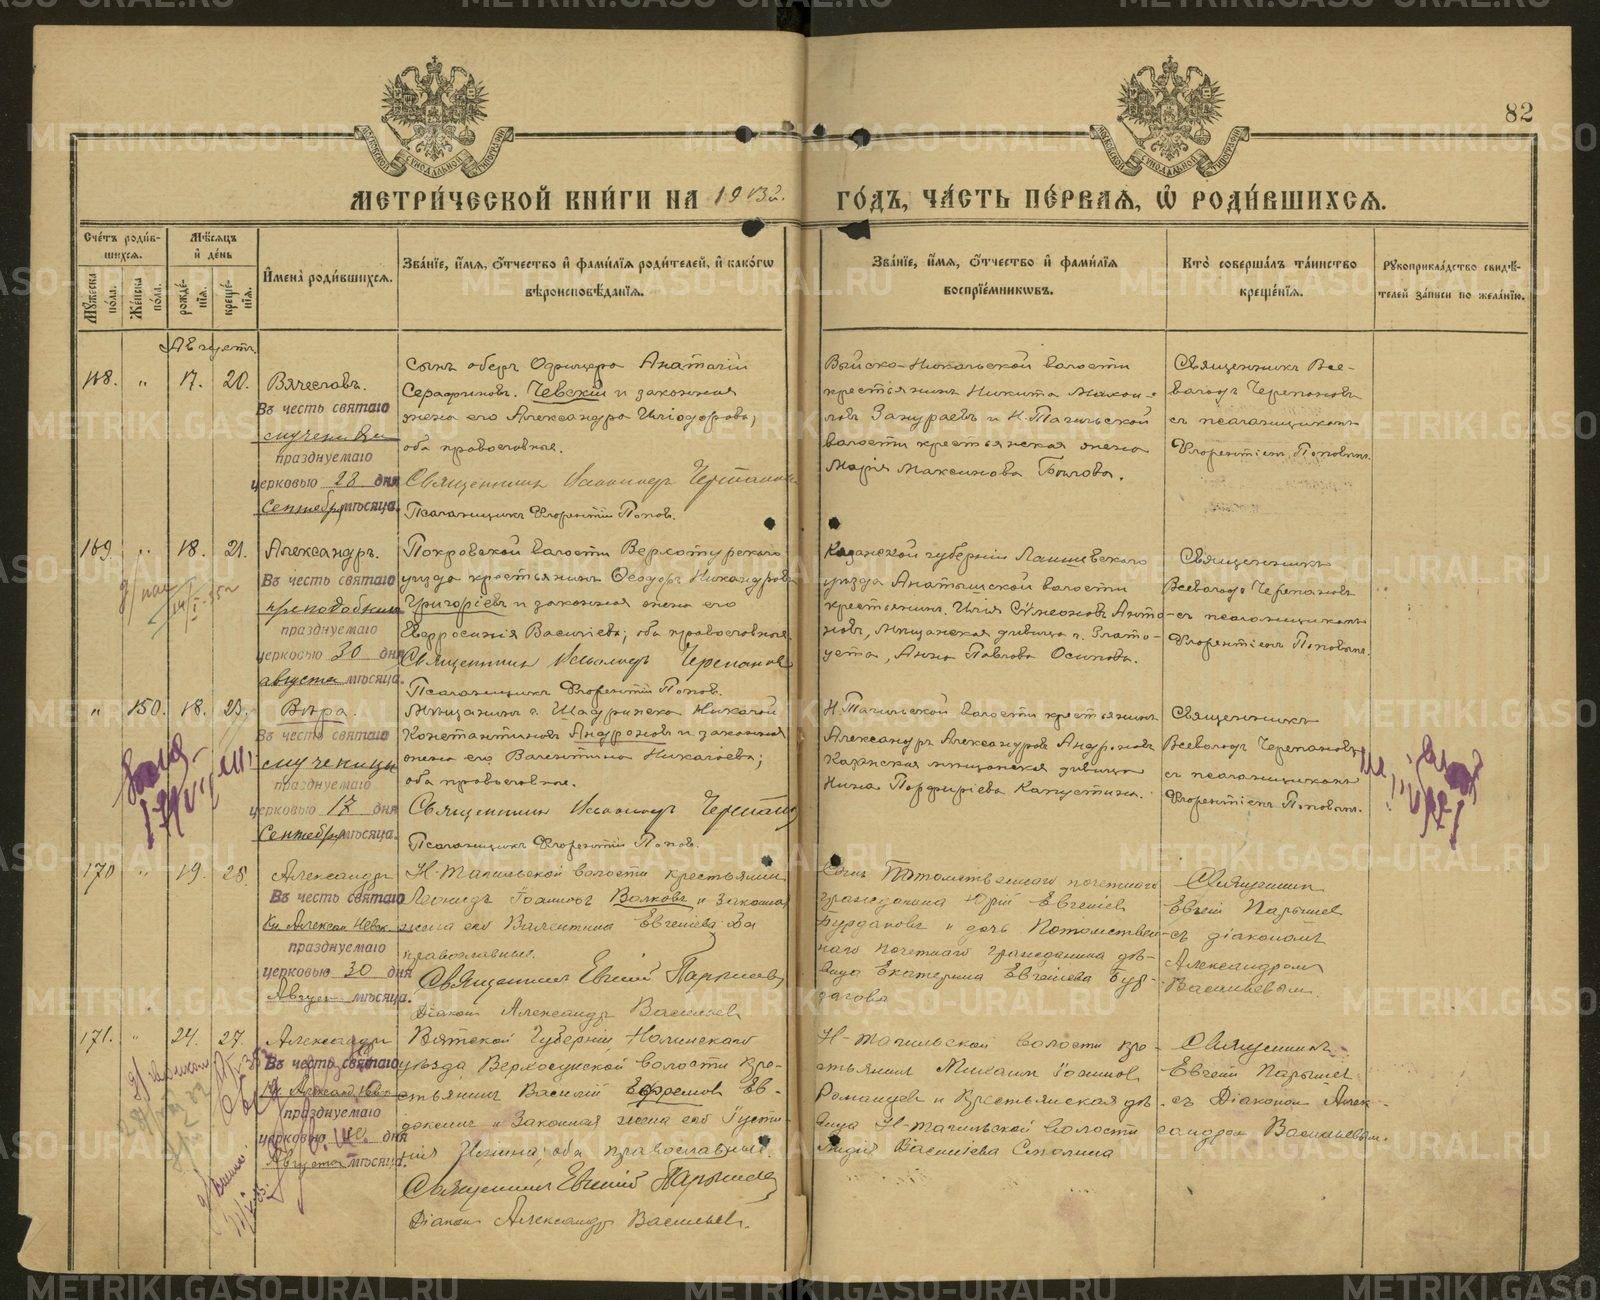 82
МЕТРИ́ЧЕСКОЙ КНИ́ГИ НА 1913й. ГО́ДЪ, ЧА́СТЬ ПЕ́РВАЯ, Ѡ РОДИ́ВШИХСЯ.
Сче́тъ роди́в-
шихся.
Мꙋжеска по́ла.
Же́нска по́ла.
Мѣ́сяцъ
и де́нь
рожде́-
нїя.
креще́-
нїя.
Имена̀ роди́вшихся.
Зва́нїе, и́мя, о́тчество и фами́лїя роди́телей, и како́гѡ
вѣроисповѣ́данїя.
Зва́нїе, и́мя, о́тчество и фами́лїя
воспрїе́мникѡвъ.
Кто̀ соверша́лъ та́инство
креще́нїя.
Рꙋкоприкла́дство свидѣ́-
телей за́писи по жела́нїю.
Августъ.
168. " 17. 20. Вячеславъ.
Въ честь святаго
мученика
празднуемаго
церковью 28 дня
Сентября мѣсяца.
Сынъ оберъ Офицера Анатолій
Серафимовъ. Чевскій и законная
жена его Александра Иліодорова;
оба православные.
Священникъ Всеволодъ Черепановъ
Псаломщикъ Флорентій Поповъ.
крестьянинъ Никита
и Н.-Тагильской
волости крестьянская жена
Марія Максимова
Священникъ Все-
володъ Черепановъ
съ псаломщикомъ
Флорентіемъ Поповымъ.
169. " 18. 21. Александръ.
Въ честь святаго
преподобнаго
празднуемаго
церковью 30 дня
августа мѣсяца.
Покровской волости Верхотурскаго
уѣзда крестьянинъ Ѳеодоръ Никандровъ
Григорьевъ и законная жена его
Евфросинія Васильева; оба православные.
Священникъ Всеволодъ Черепановъ
Псаломщикъ Флорентій Поповъ.
Казанской губерніи Лаишевскаго
уѣзда Анатышской волости
крестьянинъ Илія Сѵмеоновъ Анто-
новъ, мѣщанская дѣвица г. Злато-
уста, Анна Павлова Осипова.
Священникъ
Всеволодъ Черепановъ
съ псаломщикомъ
Флорентіемъ Поповымъ.
" 150. 18. 23. Вѣра.
Въ честь святаго
мученицы
празднуемаго
церковью 17 дня
Сентября мѣсяца.
Мѣщанинъ г. Шадринска Николай
Константиновъ Андроновъ и законная
жена его Валентина Николаева;
оба православные.
Священникъ Всеволодъ Черепановъ
Псаломщикъ Флорентій Поповъ.
Н.Тагильской волости крестьянинъ
Александръ Александровъ Андроновъ
мѣщанская дѣвица
Нина Порфиріева Капустина.
Священникъ
Всеволодъ Черепановъ
съ псаломщикомъ
Флорентіемъ Поповымъ.
170 " 19. 25. Александръ
Въ честь святаго
Кн. Алексан. Невск.
празднуемаго
церковью 30 дня
Август мѣсяца.
Н-Тагильской волости крестьянинъ
Леонидъ Іоанновъ Волковъ и законная
жена его Валентина Евгеніева оба
православные.
Священникъ Евгеній Парышевъ
Діаконъ Александръ Васильевъ
Сынъ Потомственнаго почетнаго
гражданина Юрій Евгеніевъ
Бурдаковъ и дочь Потомствен-
наго почетнаго гражданина дѣ-
вица Екатерина Евгеніева Бур-
дакова
Священникъ
Евгеній Парышевъ
съ діакономъ
Александромъ
Васильевымъ.
171. " 24. 27. Александръ
Въ честь святаго
Кн. Александ. Нев
празднуемаго
церковью 30 дня
Августа мѣсяца.
Вятской Губерніи, Нолинскаго
уѣзда Верхосунской волости кре-
стьянинъ Василій Ефремовъ Ев-
докимъ и Законная жена его Іусти-
нія оба православные.
Священникъ Евгеній Парышевъ
Діаконъ Александръ Васильевъ.
Н-Тагильской волости кре-
стьянинъ Михаилъ Іоанновъ
Романцевъ и Крестьянская дѣ-
вица Н-Тагильской волости
Лидія Васильева Смолина
Священникъ
Евгеній Парышевъ
съ Діакономъ Алек-
сандромъ Васильевымъ.
METRIKI.GASO-URAL.RU